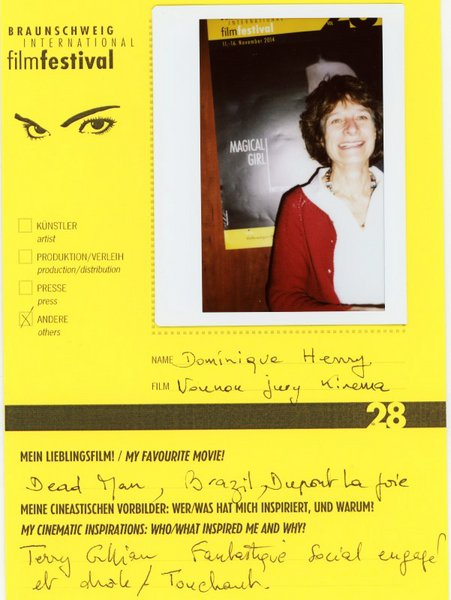 BRAUNSCHWEIG
INTERNATIONAL
filmfestival
filmfestival
11.-16. November 2014
MAGICAL
GIRL
KÜNSTLER
artist
PRODUKTION/VERLEIH
production/distribution
PRESSE
press
ANDERE
others
NAME Dominique Henry
FILM jury Kinema
28
MEIN LIEBLINGSFILM! / MY FAVOURITE MOVIE!
Dead Man, Brazil, Dupont La joie
MEINE CINEASTISCHEN VORBILDER: WER/WAS HAT MICH INSPIRIERT, UND WARUM!
MY CINEMATIC INSPIRATIONS: WHO/WHAT INSPIRED ME AND WHY!
Terry Gilliam Fantastique Social engagé
et drôle / Touchant.